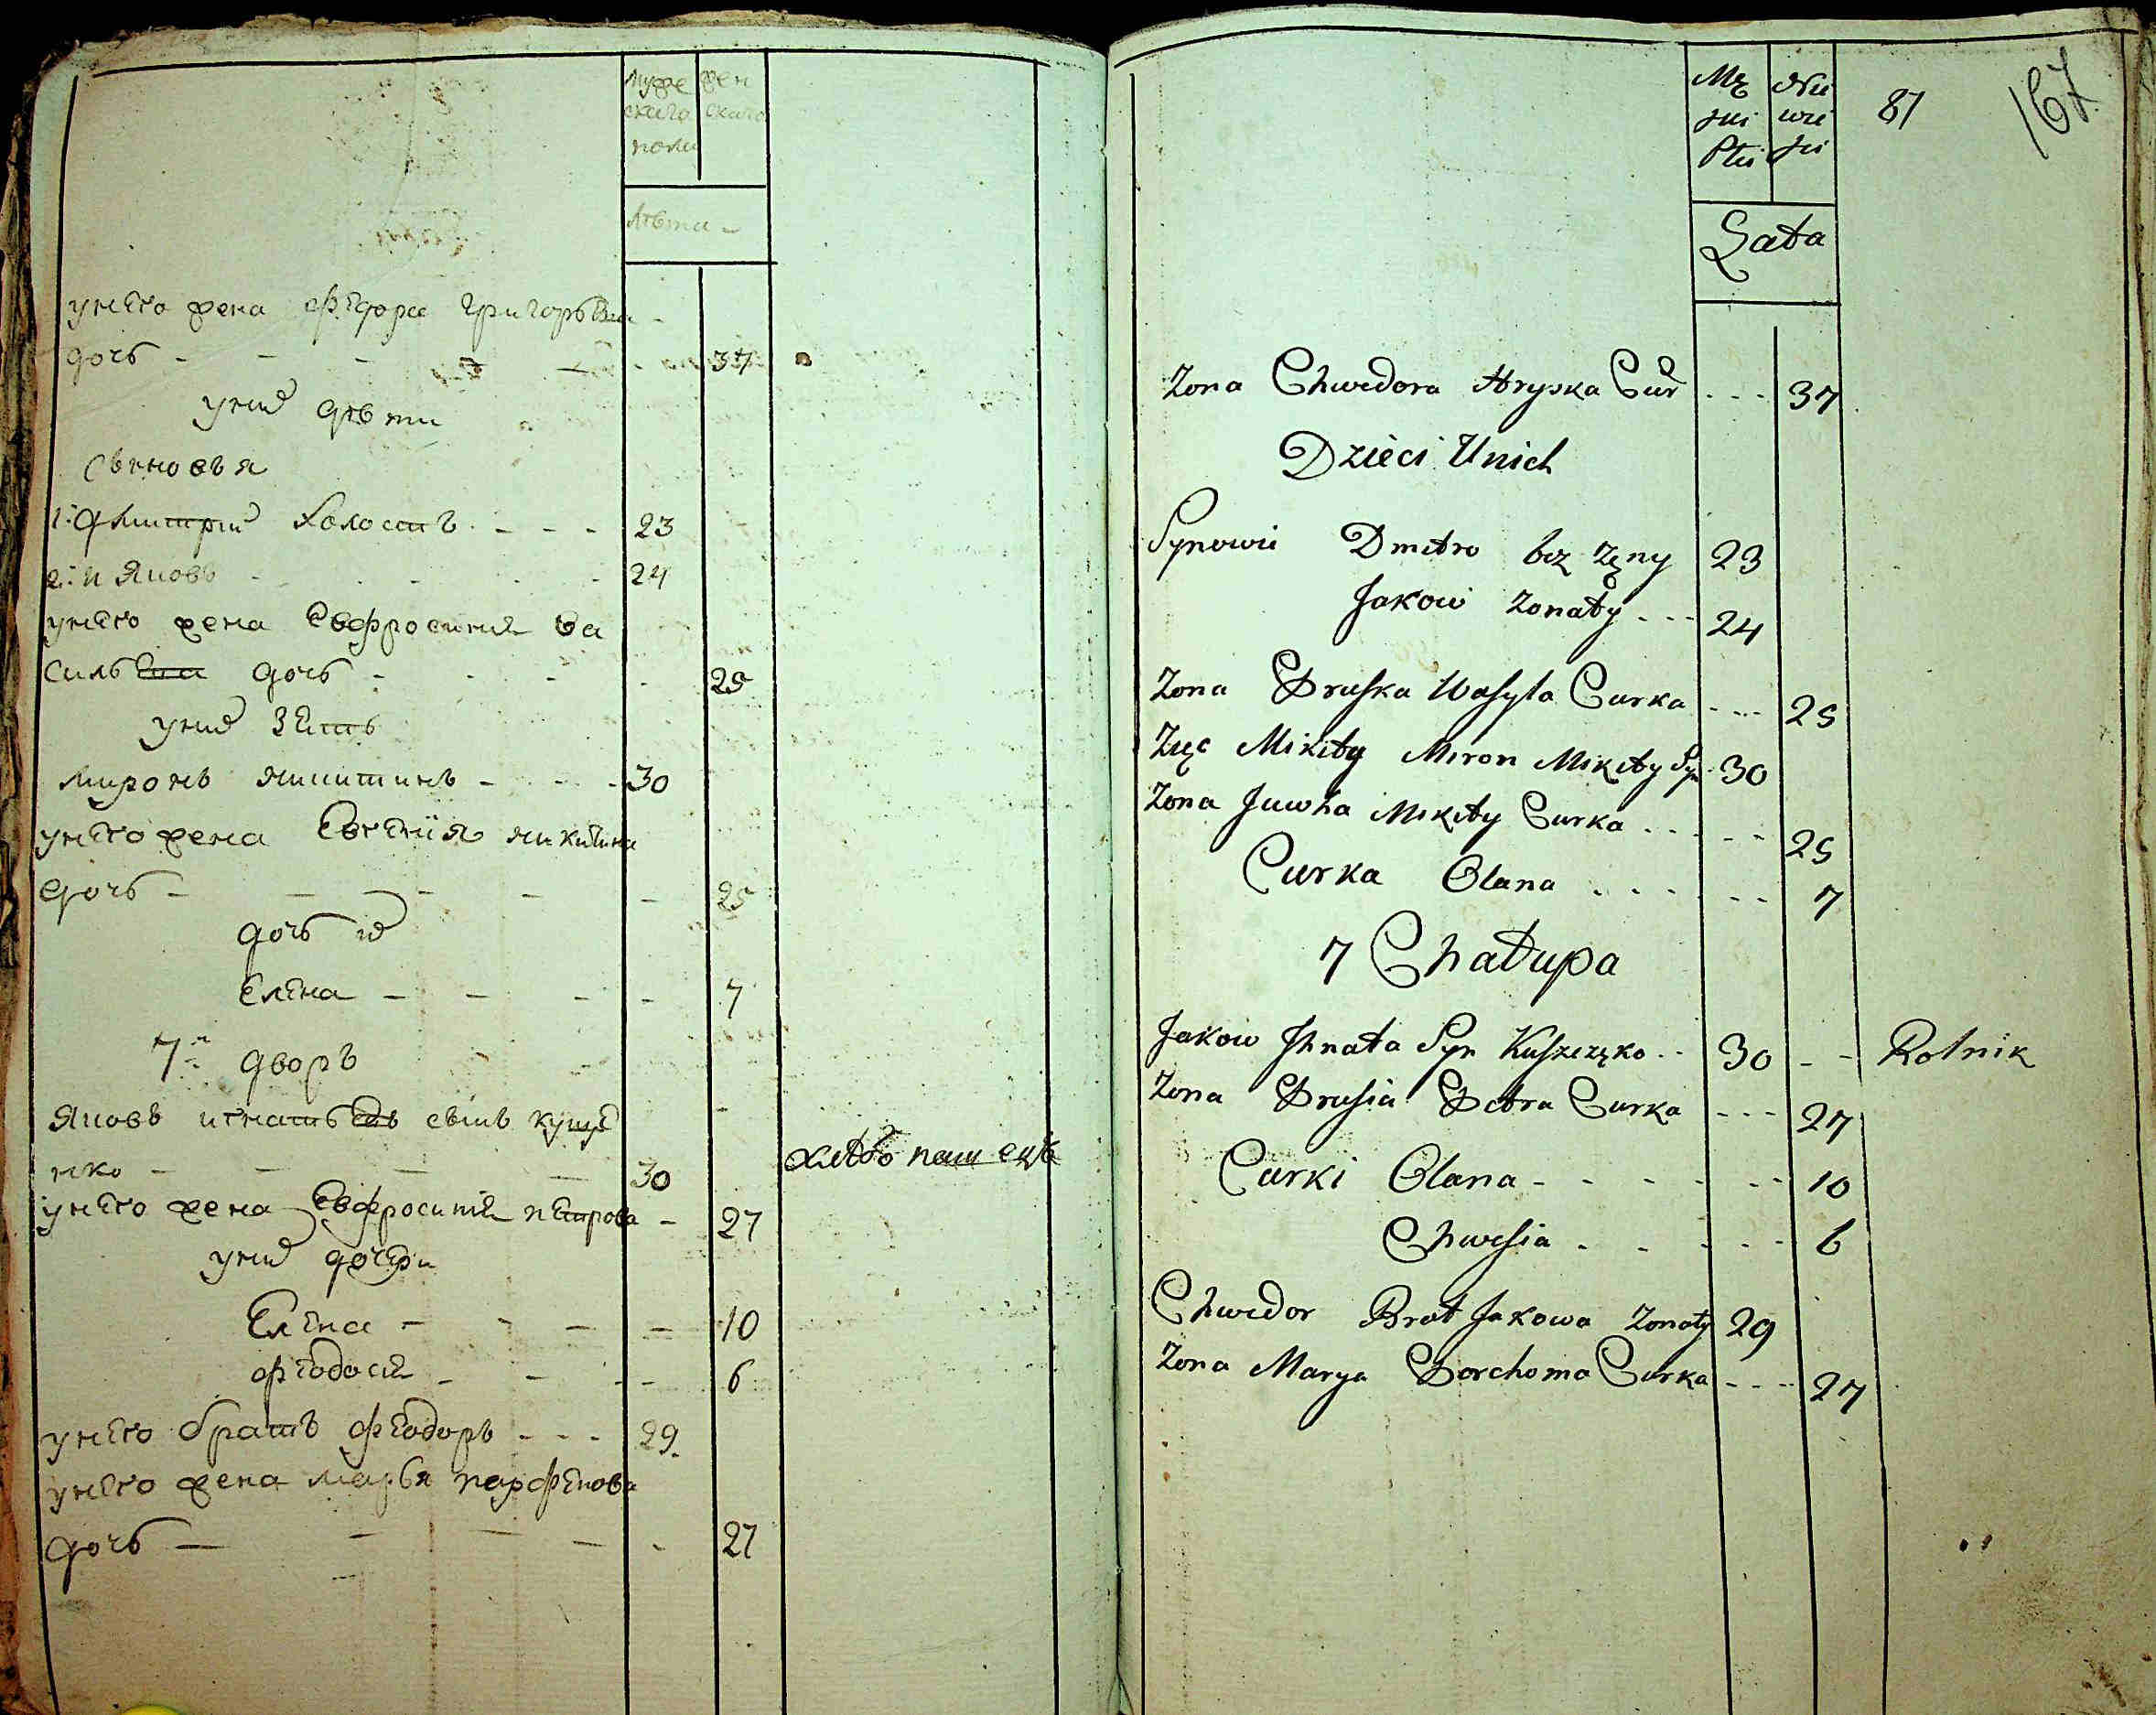 муже жен
скаго скаго
полу
лѣта -
унего жена федора григорьева
дочь - - - 37
уних дѣти
Сыновья
1: дмитрий холостъ - - - 23
2: и Яковъ - - - 24
унего жена Евфросиния ва
сильева дочь - - - 25
уних зять
миронъ никитинъ - - - 30
унего жена Евгения никитина
дочь - - - - - 25
дочь их
Елена - - - - 7
7й дворъ
Яковъ игнатьевъ сынъ куще
нко - - - - 30 хлебопашецъ
унего жена Евфросиния петрова - 27
уних дочери
Елена - - - - 10
феодосия - - - - 6
унего братъ феодоръ - - - 29.
унего жена марья парфенова
дочь - - - - 27
Mę Nie
ski wie
Płci ski
87 167.
Lata
Zona Chwedora Hryska Cur - - - 37
Dzieci Unich
Synowie Dmitro bez zęny 23
Jakow zonaty - - - 24
Zona Pruska Wasyla Curka - - - 25
Zięc Mikity Miron Mikity Syn 30
Zona Juwha Mikity Curka - - - - 25
Curka Olana - - - - - 7
7 Chałupa
Jakow Ihnata Syn Kuszczęko - - 30 - - Rolnik
Zona Prusia Petra Curka - - - 27
Curki Olana - - - - - - 10
Chwesia - - - - - 6
Chwedor Brat Jakowa zonaty 29
Zona Marya Parchoma Curka - - - 27